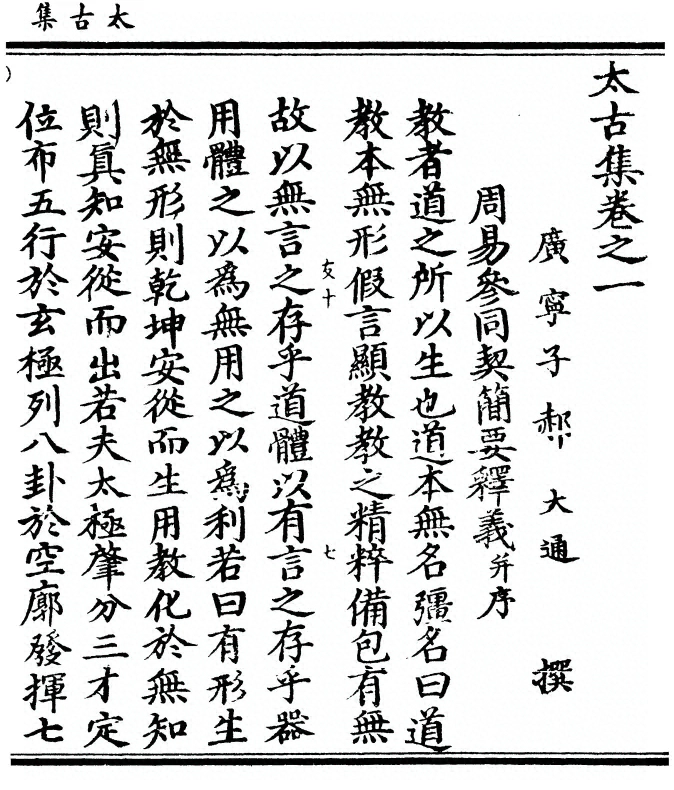 太古集
太古集卷之一
廣寧子郝大通撰
周易參同契簡要釋義并序
教者道之所以生也道本無名彊名曰道
教本無形假言顯教教之精粹備包有無
故以無言之存乎道體以有言之存乎器
用體之以為無用之以為利若曰有形生
於無形則乾坤安從而生用教化於無知
則眞知安從而出若夫太極肇分三才定
位布五行於玄極列八卦於空廓發揮七
友十
七